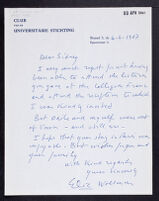 CLUB
VAN DE
UNIVERSITAIRE STICHTING
Dear Sidney
I very much regret not having
been able to attend the lectures
you gave at the Collège de France
and attend the reception to which
I was kindly invited
But Oscar and myself were out
of town — and still are.
I hope that your stay in Paris was
enjoyable. Best wishes for you and
your family
With kind regards
Yours sincerely